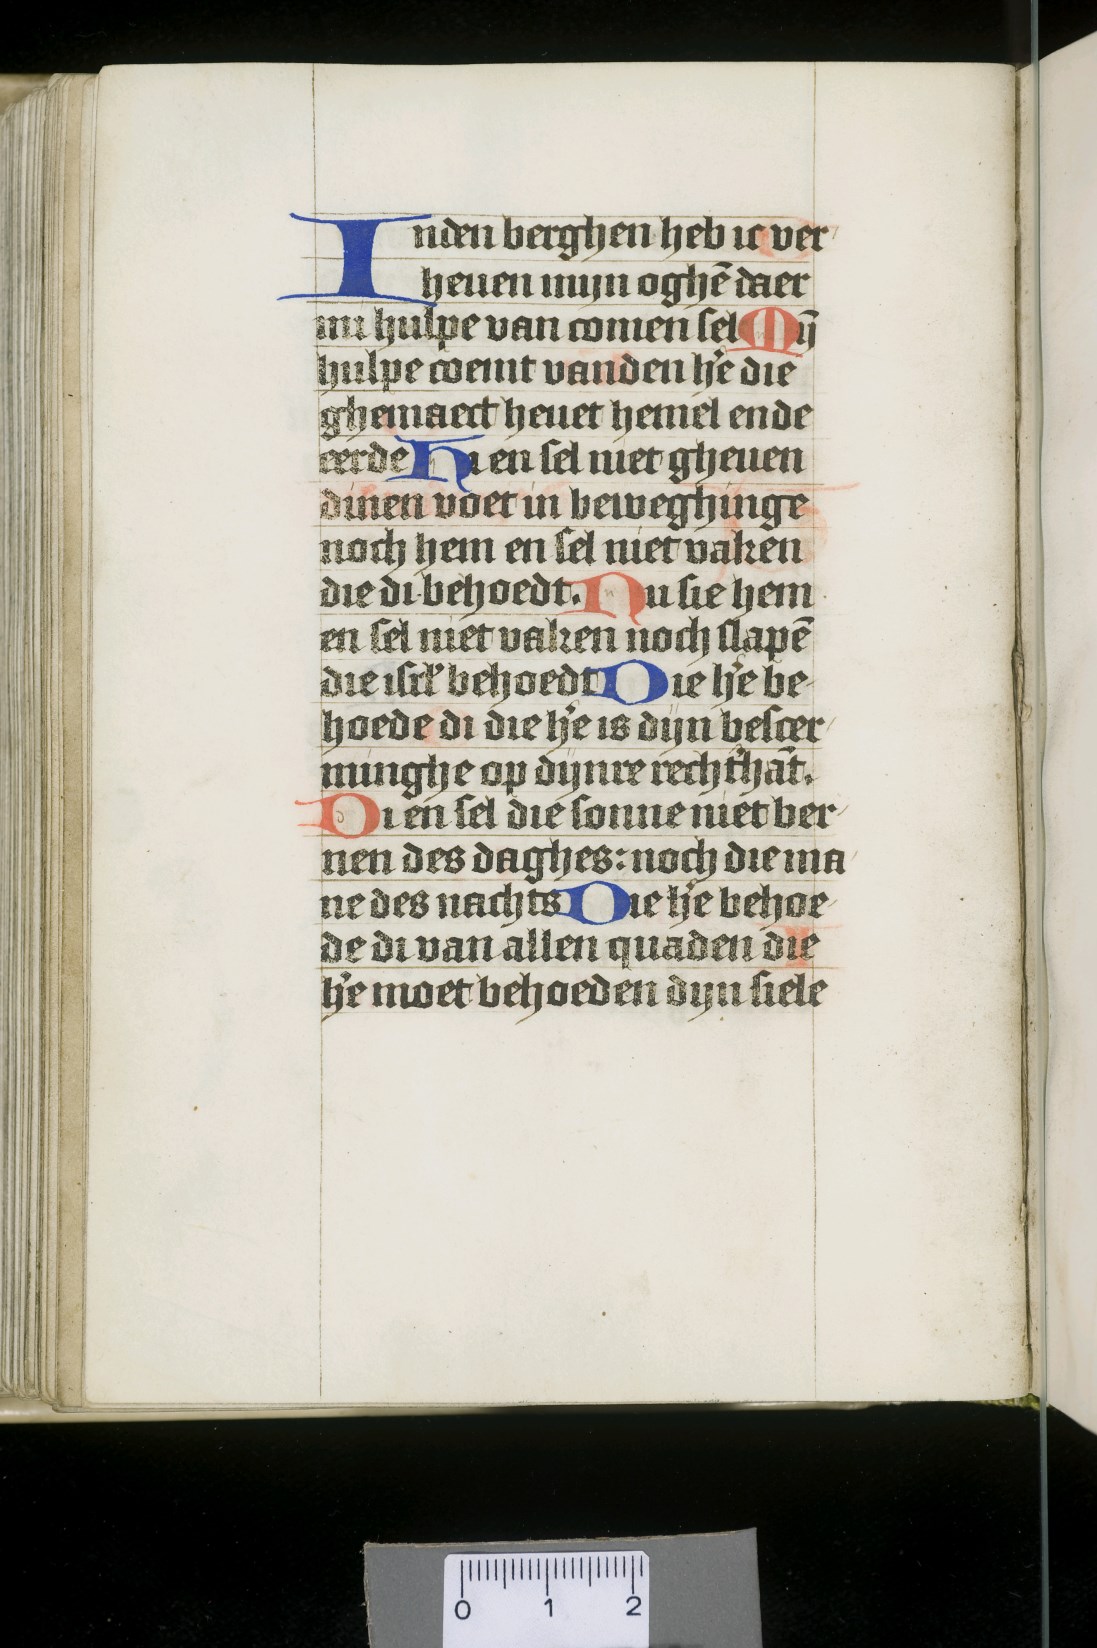 Inden berghen heb ic ver
heuen mijn oghē daer
mi hulpe van comen sel Mÿ
hulpe coemt vanden hẽ die
ghemaect heuet hemel ende
eerde Hi en sel niet gheuen
dinen voet in beweghinge
noch hem en sel niet vaken
die di behoedt. Nu sie hem
en sel niet vaken noch slapē
die isrl̃ behoedt Die hẽ be
hoede di die hẽ is dijn bescer
minghe op dijnre rechtħāt.
Di en sel die sonne niet ber
nen des daghes: noch die ma
ne des nachts Die hẽ behoe
de di van allen quaden die
hẽ moet behoeden dijn siele
0 1 2